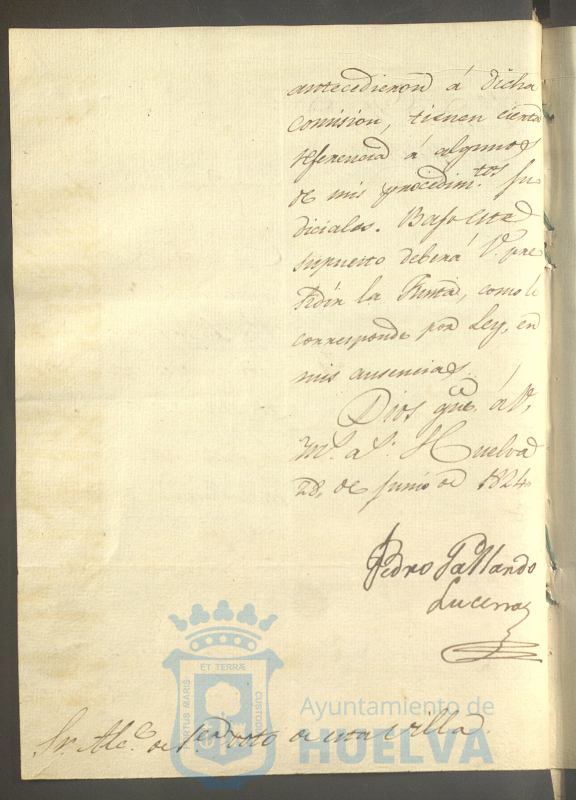 antecedieron á dicha
Comision, tienen cierta
referencia á algunos
de mis procedim.tos Ju
diciales. Bajo este
supuesto deberá V. pre
sidir la Junta, como le
corresponde por Ley, en
mis ausencias.
Dios gue. á V.
m.s a.s Huelva
28, de Junio de 1824.
Pedro Gallardo
Lucena
Sr. Alc.e de 2.º voto de esta villa
ET TERRÆ
PORTUS MARIS
CUSTODIA
Ayuntamiento de
HUELVA